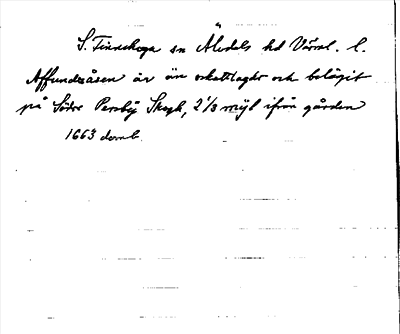 S. Finnskoga sn Älvdals hd Värml. l.
Affundzåsen är än oskattlagdt och belägit
på Södre Persby Skogh, 2 1/3 mijl ifrån gården
1663 domb.